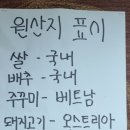 원산지 표시
쌀 - 국내
배추 - 국내
주꾸미 - 베트남
돼지고기 - 오스트리아